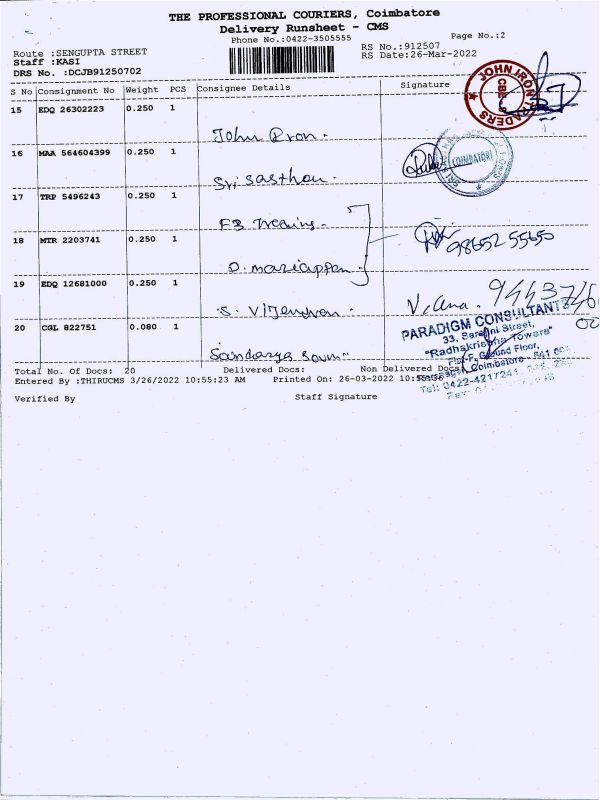 THE PROFESSIONAL COURIERS, Coimbatore
Delivery Runsheet - CMS
Phone No.:0422-3505555
Page No.:2
Route :SENGUPTA STREET
RS No.:912507
Staff :KASI
RS Date:26-Mar-2022
DRS No. :DCJB91250702
S No Consignment No Weight PCS Consignee Details Signature
15 EDQ 26302223 0.250 1
John Iron.
JOHN IRON TRADERS
16 MAA 564604399 0.250 1
Sri Sasthau.
COIMBATORE
17 TRP 5496243 0.250 1
18 MTR 2203741 0.250 1
98652 5565
D. mariappan.
19 EDQ 12681000 0.250 1
S.
20 CGL 822751 0.080 1
PARADIGM CONSULTANTS
33, Street,
"Radhakrishna Towers"
Ground Floor,
Coimbatore - 641
Total No. Of Docs: 20 Delivered Docs: Non Delivered Docs
Entered By :THIRUCMS 3/26/2022 10:55:23 AM Printed On: 26-03-2022
Tel: 0422-4217241
Verified By Staff Signature